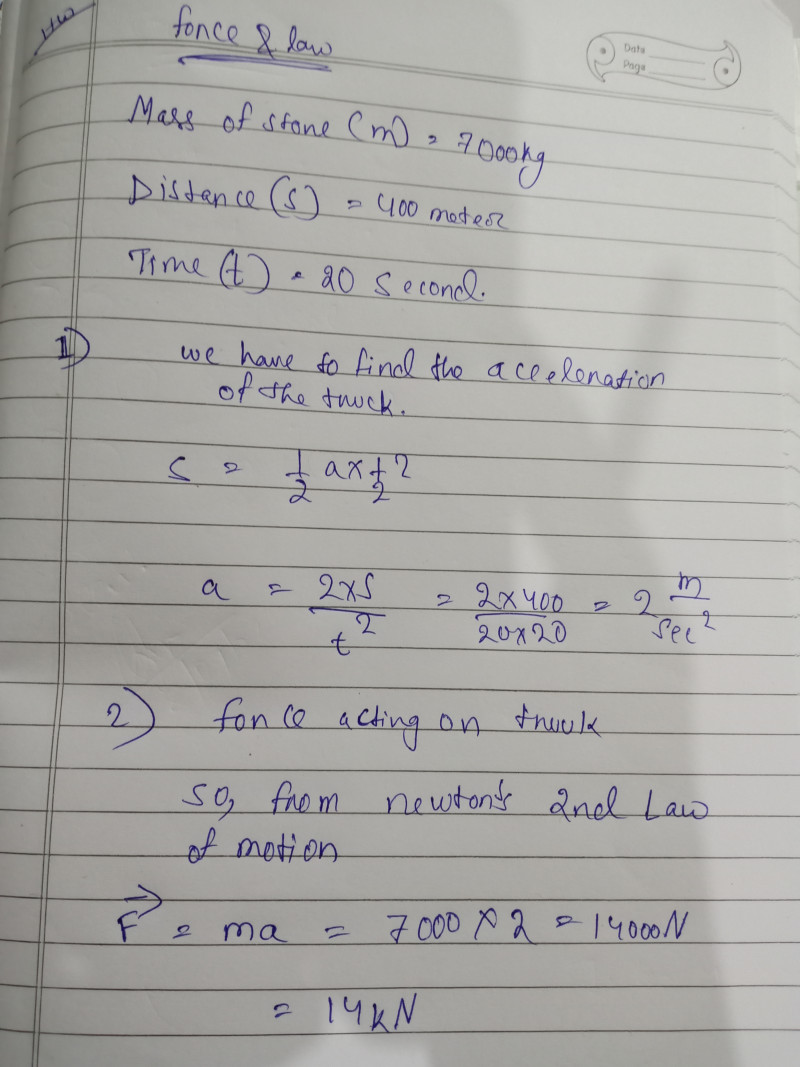 HW
force & law
Data
Page
Mass of stone (m) = 7000kg
Distance (s) = 400 meter
Time (t) = 20 Second.
1) we have to find the aceeleration
of the truck.
s = 1/2 a x t/2 2
a = 2xs/t² = 2x400/20x20 = 2 m/sec²
2) force acting on truck
so, from newton's 2nd Law
of motion
F⃗ = ma = 7000 x 2 = 14000N
= 14kN